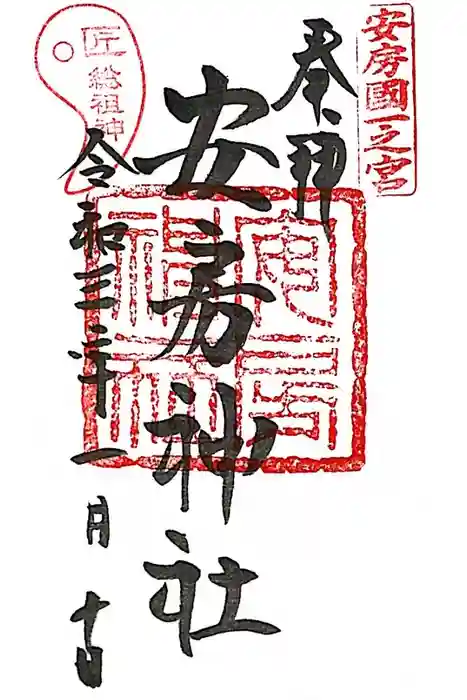 安房國一之宮
奉拝
安房神社
安房神社
匠総祖神
令和三年一月十日